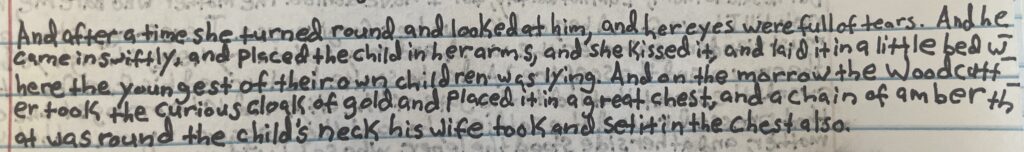 And after a time she turned round and looked at him, and her eyes were full of tears. And he
came in swiftly, and placed the child in her arms, and she kissed it, and laid it in a little bed w
here the youngest of their own children was lying. And on the morrow the Woodcutt
er took the curious cloak of gold and placed it in a great chest, and a chain of amber th
at was round the child's neck his wife took and set it in the chest also.